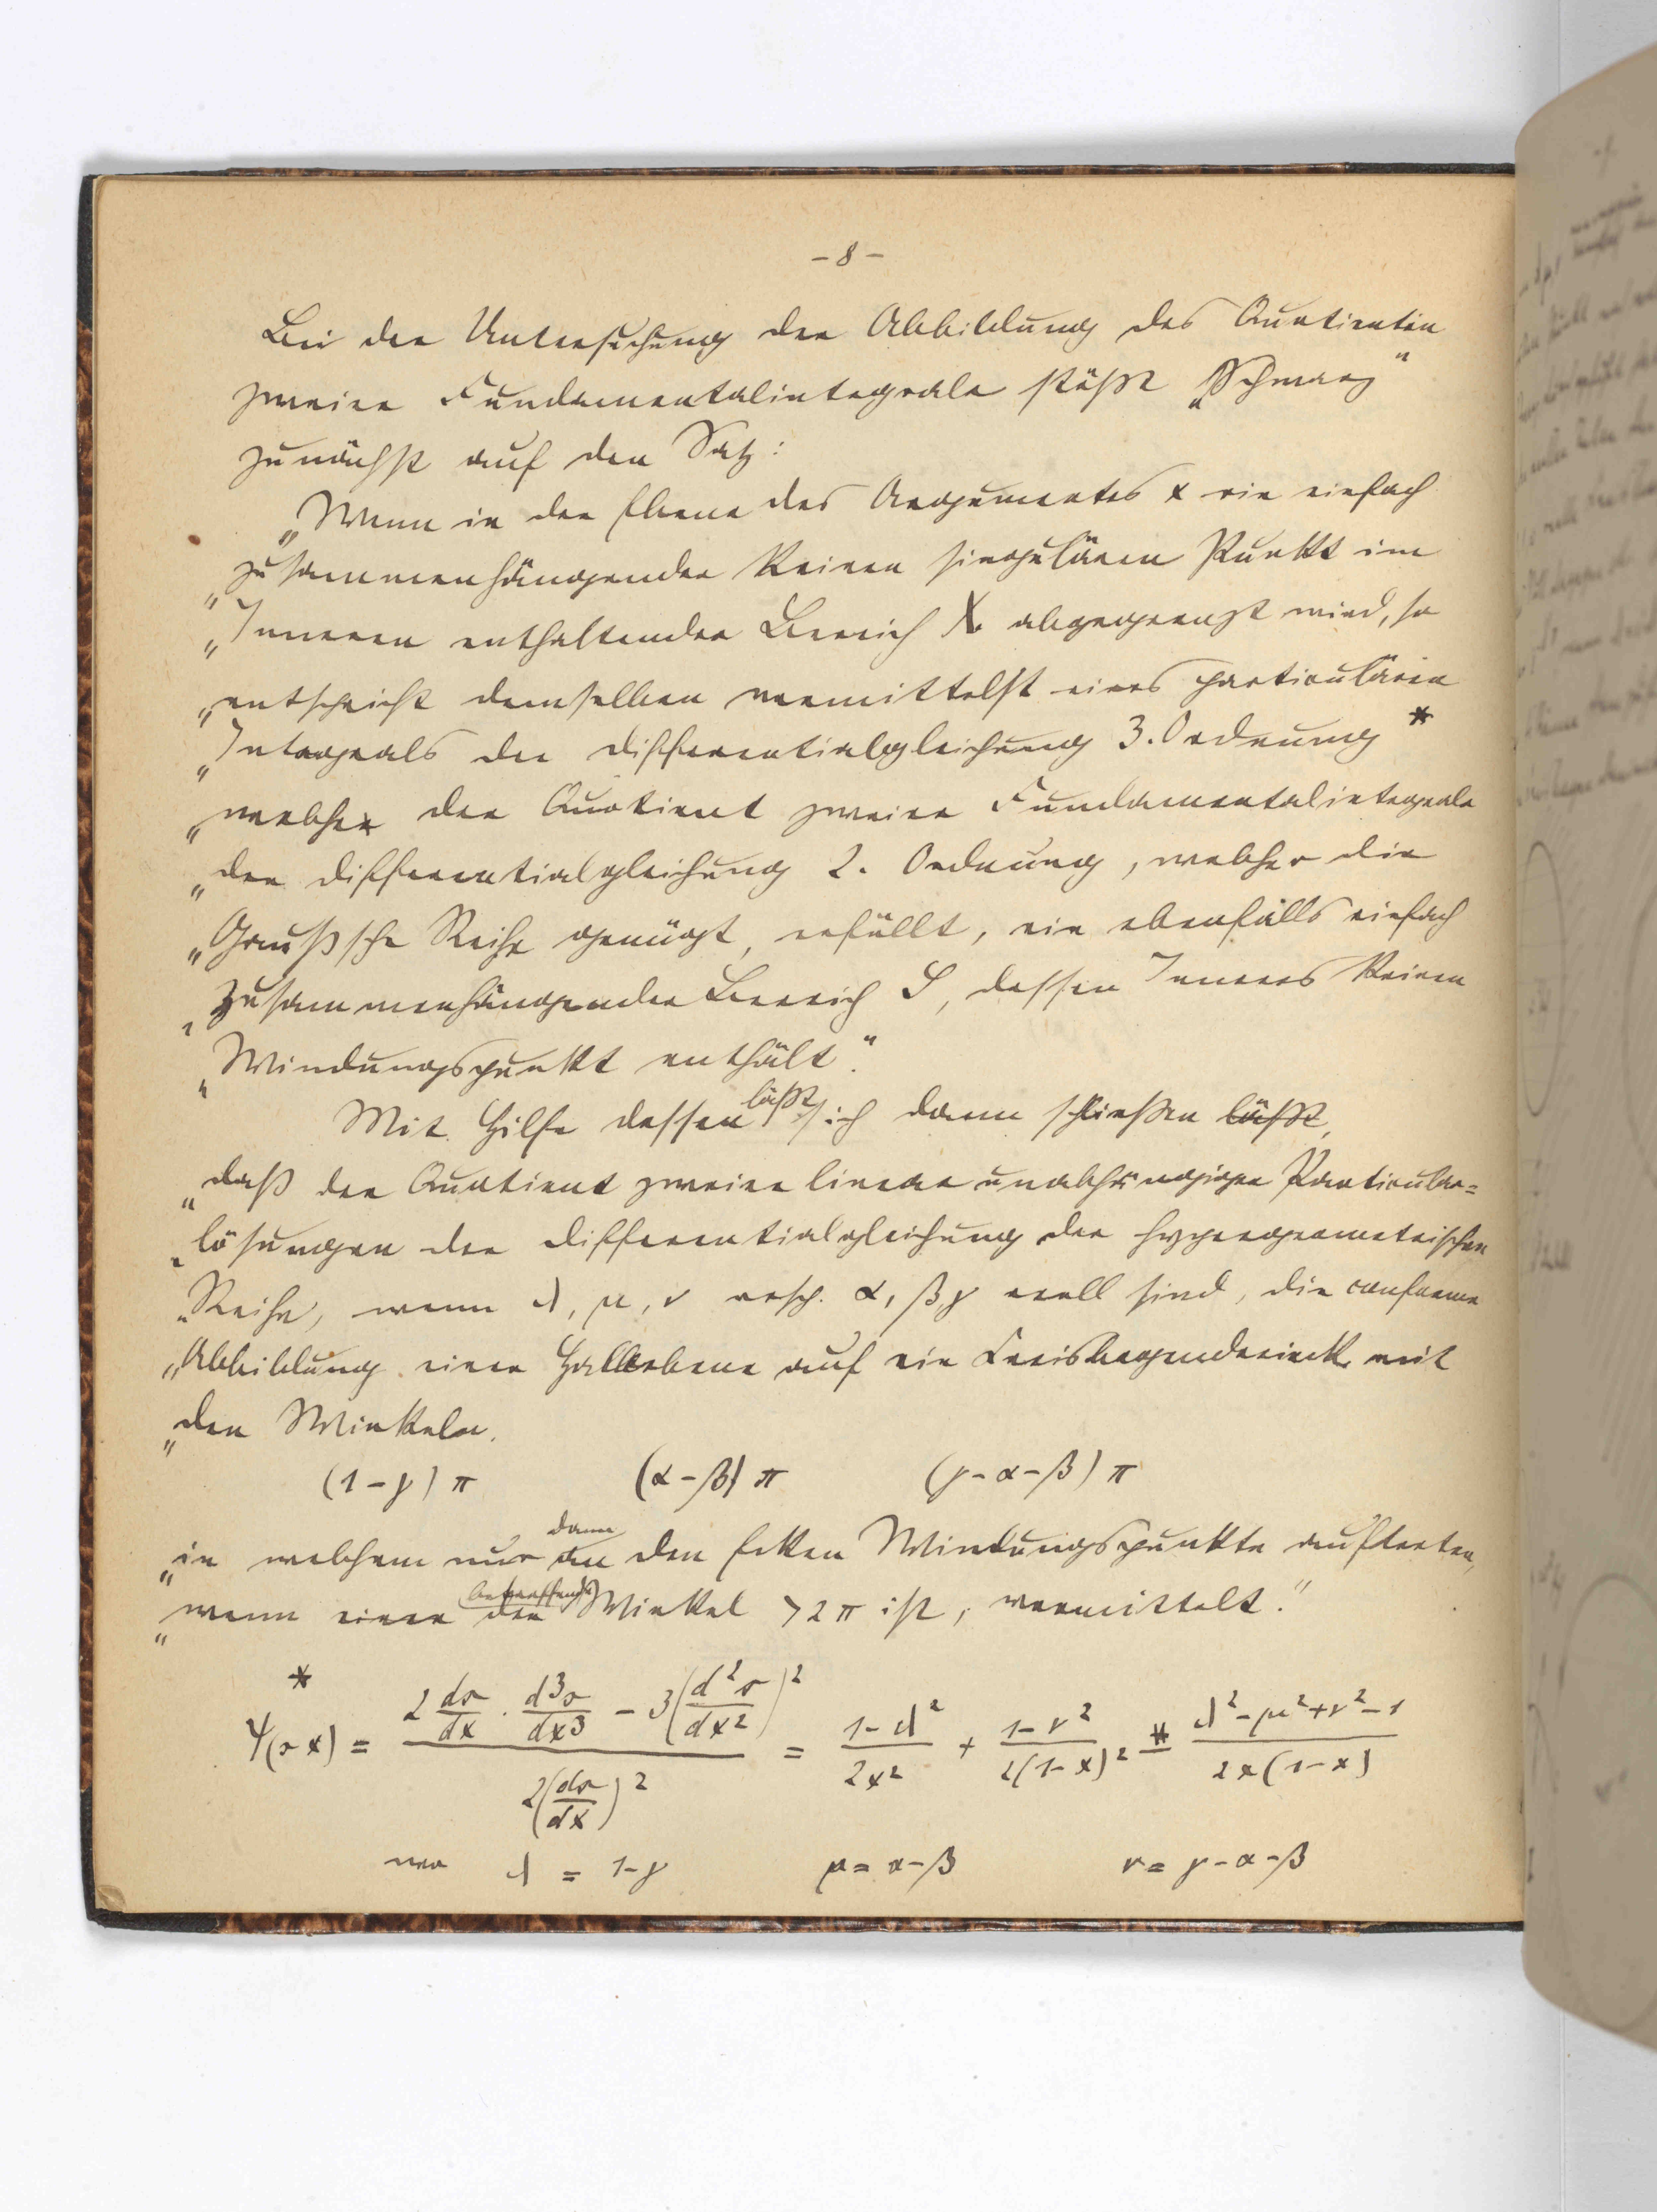 - 8 -
Bei der Untersuchung der Abbildung des Quotienten
zweier Fundamentalintegrale stößt „Schwarz“
zunächst auf den Satz:
„Wenn in der Ebene des Argumentes x ein einfach
„zusammenhängender keinen singulären Punkt im
„Inneren enthaltender Bereich X abgegrenzt wird, so
„entspricht demselben vermittelst eines particulären
„Integrals der Differentialgleichung 3. Ordnung *
„welcher der Quotient zweier Fundamentalintegrale
„der Differentialgleichung 2. Ordnung, welcher die
„Gaußsche Reihe genügt, erfüllt, ein ebenfalls einfach
„zusammenhängender Bereich S, dessen Inneres keinen
„Windungspunkt enthält“.
Mit Hilfe dessen läßt sich dann schließen läßt,
„daß der Quotient zweier linear unabhängiger Particular=
„lösungen der Differentialgleichung der hypergeometrischen
„Reihe, wenn λ, μ, ν resp. α, β γ reell sind, die conforme
„Abbildung einer Halbebene auf ein Kreisbogendreieck mit
„den Winkeln.
(1-γ) π (α-β) π (γ-α-β) π
„in welchem nur dann an den Ecken Windungspunkte auftreten,
„wenn einer der betreffenden Winkel > 2π ist, vermittelt.“
*
Ψ(s x) = (2 ds/dx · d³s/dx³ - 3(d²s/dx²)²) / (2(ds/dx)²) = (1-λ²)/(2x²) + (1-ν²)/(2(1-x)²) - (λ²-μ²+ν²-1)/(2x(1-x))
wo λ = 1-γ μ = α-β ν = γ-α-β